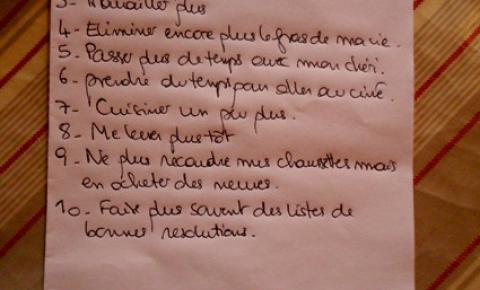 3- Travailler plus
4- Eliminer encore plus le gras de ma vie.
5. Passer plus de temps avec mon chéri.
6. prendre du temps pour aller au ciné.
7- Cuisiner un peu plus.
8- Me lever plus tôt
9- Ne plus recoudre mes chaussettes mais
en acheter des neuves.
10- Faire plus souvent des listes de
bonnes resolutions.